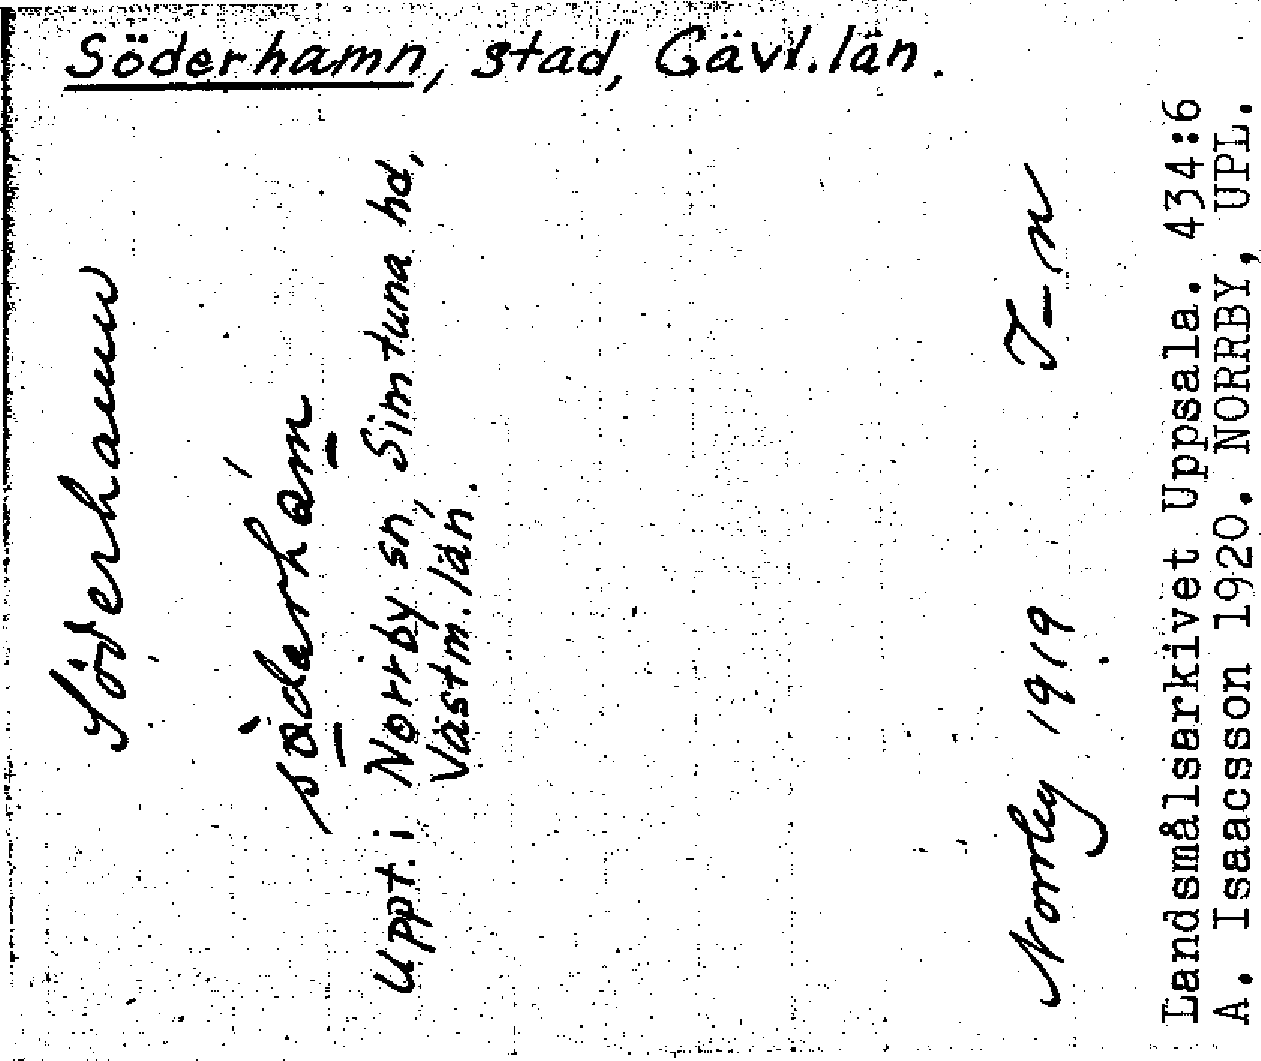 Söderhamn, stad, Gävl. län.
Söderhamn
Uppt. i Norrby sn, Simtuna hd,
Västm. län.
Norrby 1919 I-n
Landsmålsarkivet Uppsala. 434:6
A. Isaacsson 1920. NORRBY, UPL.